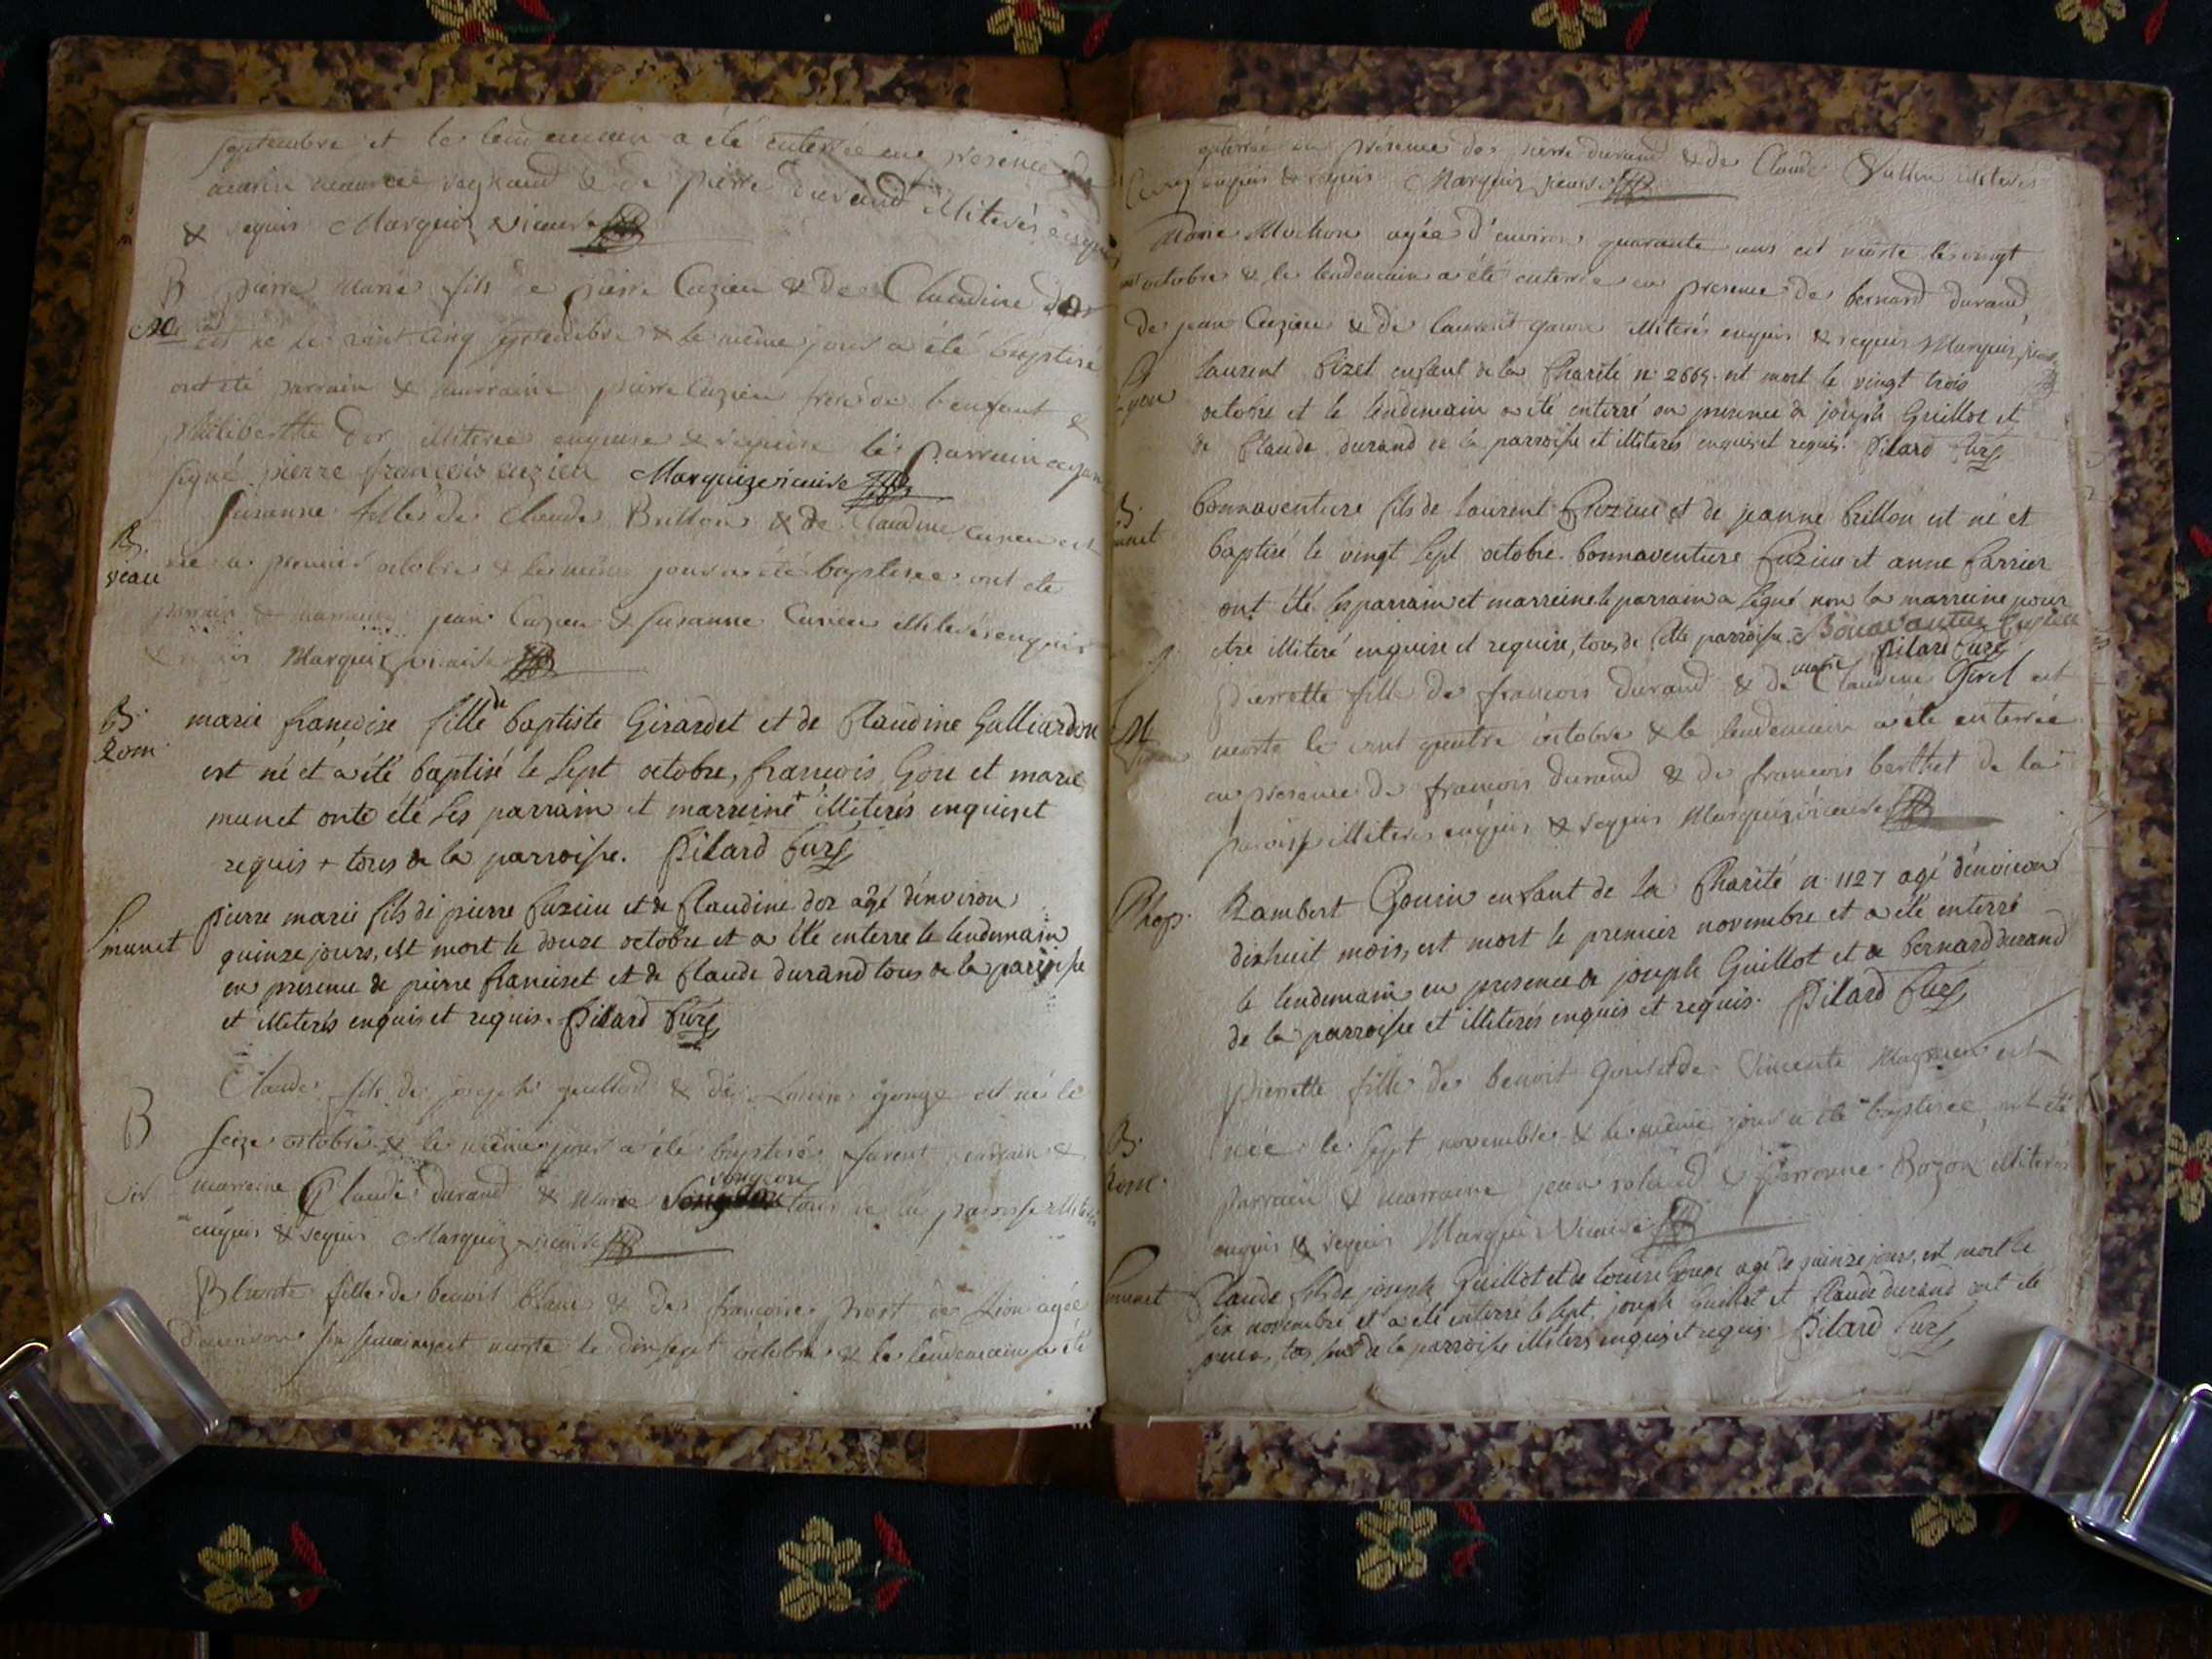 septembre et le lendemain a été enterrée en presence de
Reynaud & de pierre durand illiterés enquis
& requis Marquis vicaire
B pierre Marie fils de pierre Cuzieu & de Claudine dor
est né le vint cinq septembre & le même jour a été baptisé
ont été parrain & marraine pierre Cuzieu frere de l'enfant &
philiberthe dor illiterée enquise & requise le parrain ayant
signé pierre françois cuzieu Marquis vicaire
Susanne fille de Claude Brillon & de Claudine Cuzieu est
B.
veau
née le premier octobre & le même jour a été baptisee ont été
parrain & marraine jean Cuzieu & Susanne Cuzieu illiterés enquis
& requis Marquis vicaire
B.
Rom
marie françoise fille de baptiste Girardet et de Claudine Galliardon
est né et a été baptisé le sept octobre, francois Gou et marie
munet onte été les parrain et marreine + illiterés enquis et
requis + tous de la parroisse. Pilard Curé
munet
pierre marie fils de pierre Cuzieu et de Claudine dor agé d'environ
quinze jours, est mort le douze octobre et a été enterre le lendemain
en presence de pierre franciset et de Claude durand tous de la paroisse
et illiterés enquis et requis. Pilard Curé
Claude fils de joseph guillod & de Louise gouge est né le
B
seize octobre & le même jour a été baptisé furent parrain &
marraine Claude durand & Marie tous de la paroisse illiterés
enquis & requis Marquis vicaire
fille de benoit blanc & de françoise prost de Lion agée
d'environ six semaines est morte le dixsept octobre & le lendemain a été
enterrée en présence de pierre durand & de Claude Vullion illiterés
enquis & requis Marquis vicaire
Marie Mochon agée d'environ quarante ans est morte le vingt
octobre & le lendemain a été enterrée en presence de bernard durand,
de jean Cuzieu & de laurent gouin illiterés enquis & requis Marquis vicaire
Lyon
Laurent Bizet enfant de la Charité n. 2669. est mort le vingt trois
octobre et le lendemain a été enterré en presence de joseph Guillot et
de Claude durand de la parroisse et illiterés enquis et requis. Pilard Curé
B.
munet
bonnaventure fils de laurent Cuzieu et de jeanne brillon est né et
baptisé le vingt sept octobre. bonnaventure Cuzieu et anne farrier
ont été les parrain et marreine le parrain a signé non la marreine pour
etre illiteré enquise et requise, tous de cette parroisse. Bonavanture Cuzieu
Pilard Curé
pierrette fille de francois durand & de marie Claudine Girel est
M
morte le vint quatre octobre & le lendemain a été enterrée
en présence de francois durand & de francois berthet de la
paroisse illiteres enquis & requis Marquis vicaire
Rambert Gouin enfant de la Charité n. 1127 agé d'environ
dixhuit mois, est mort le premier novembre et a été enterré
le lendemain en presence de joseph Guillot et de bernard durand
de la parroisse et illiterés enquis et requis. Pilard Curé
pierrette fille de benoit & de Vincente Magnien est
B.
Rom.
née le sept novembre & le même jour a été baptisée, ont été
parrain & marraine jean roland & pierronne Bozon illiteres
enquis & requis Marquis Vicaire
munet
Claude fils de joseph Guillot et de louise Gouge agé de quinze jours, est mort le
six novembre et a été enterré le sept. joseph Guillot et Claude durand ont été
presens, tous deux de la parroisse illiterés enquis et requis. Pilard Curé